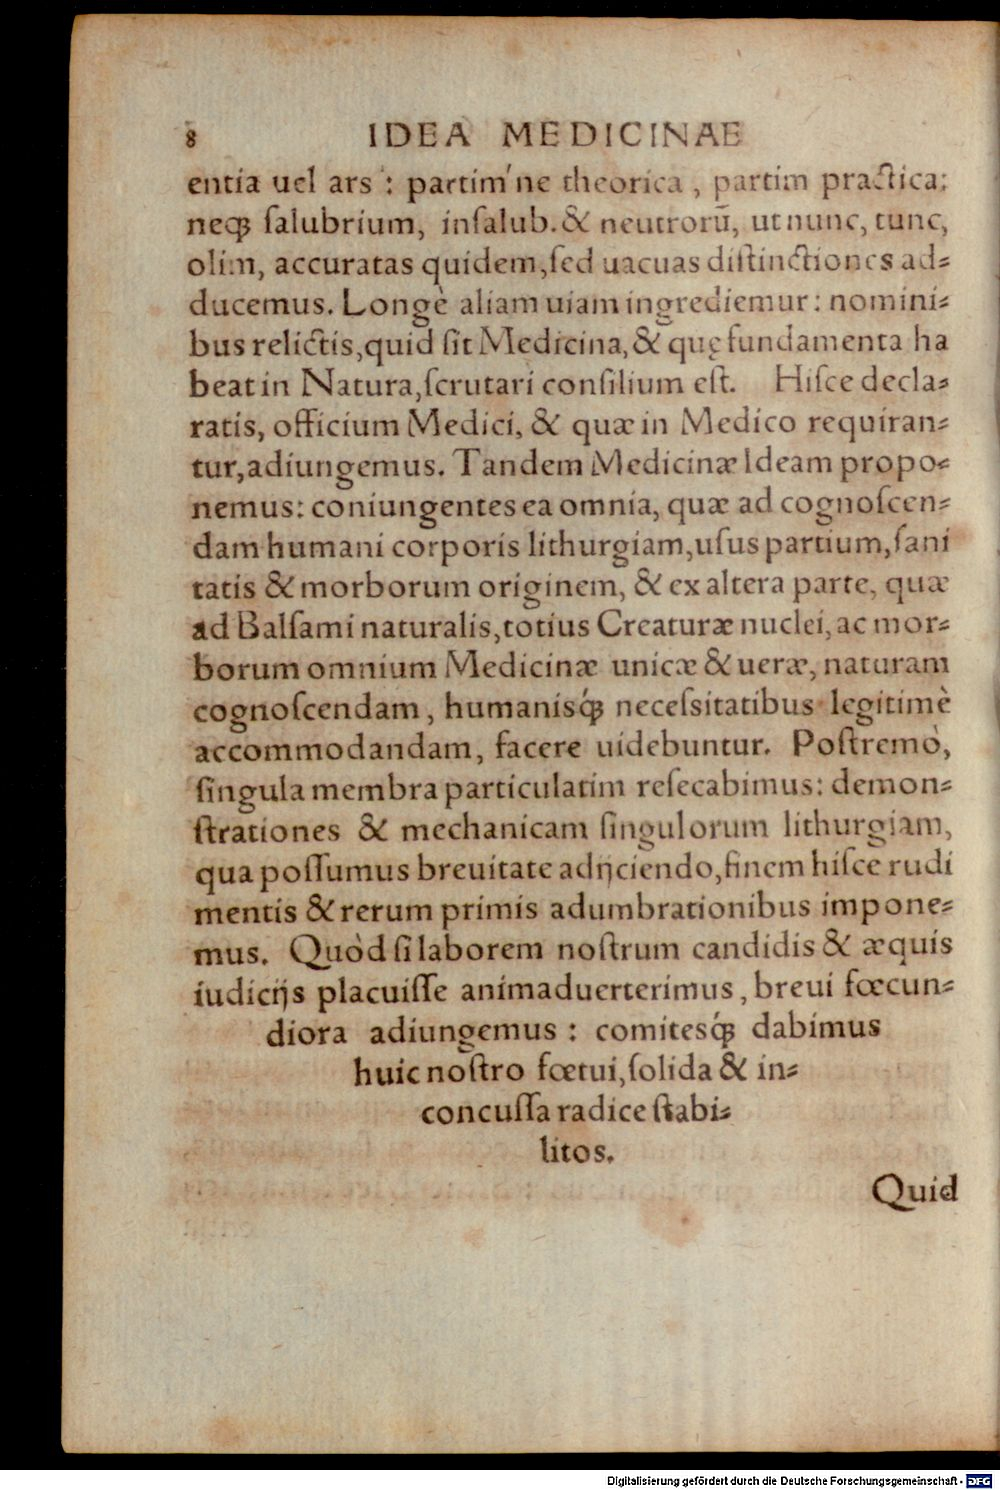 8 IDEA MEDICINAE
entia uel ars : partim'ne theorica , partim practica:
neqꝫ ſalubrium, inſalub. & neutrorũ, ut nunc, tunc,
olim, accuratas quidem, ſed uacuas diſtinctiones ad⸗
ducemus. Longè aliam uiam ingrediemur: nomini⸗
bus relictis, quid ſit Medicina, & quę fundamenta ha
beat in Natura, ſcrutari conſilium eſt. Hiſce decla⸗
ratis, officium Medici, & quæ in Medico requiran⸗
tur, adiungemus. Tandem Medicinæ Ideam propo⸗
nemus: coniungentes ea omnia, quæ ad cognoſcen⸗
dam humani corporis lithurgiam, uſus partium, ſani
tatis & morborum originem, & ex altera parte, quæ
ad Balſami naturalis, totius Creaturæ nuclei, ac mor⸗
borum omnium Medicinæ unicæ & ueræ, naturam
cognoſcendam, humanisq́ꝫ neceſsitatibus legitimè
accommodandam, facere uidebuntur. Poſtremò,
ſingula membra particulatim reſecabimus: demon⸗
ſtrationes & mechanicam ſingulorum lithurgiam,
qua poſſumus breuitate adijciendo, finem hiſce rudi
mentis & rerum primis adumbrationibus impone⸗
mus. Quòd ſi laborem noſtrum candidis & æquis
iudicijs placuiſſe animaduerterimus, breui fœcun⸗
diora adiungemus : comitesq́ꝫ dabimus
huic noſtro fœtui, ſolida & in⸗
concuſſa radice ſtabi⸗
litos.
Quid
Digitalisierung gefördert durch die Deutsche Forschungsgemeinschaft - DFG